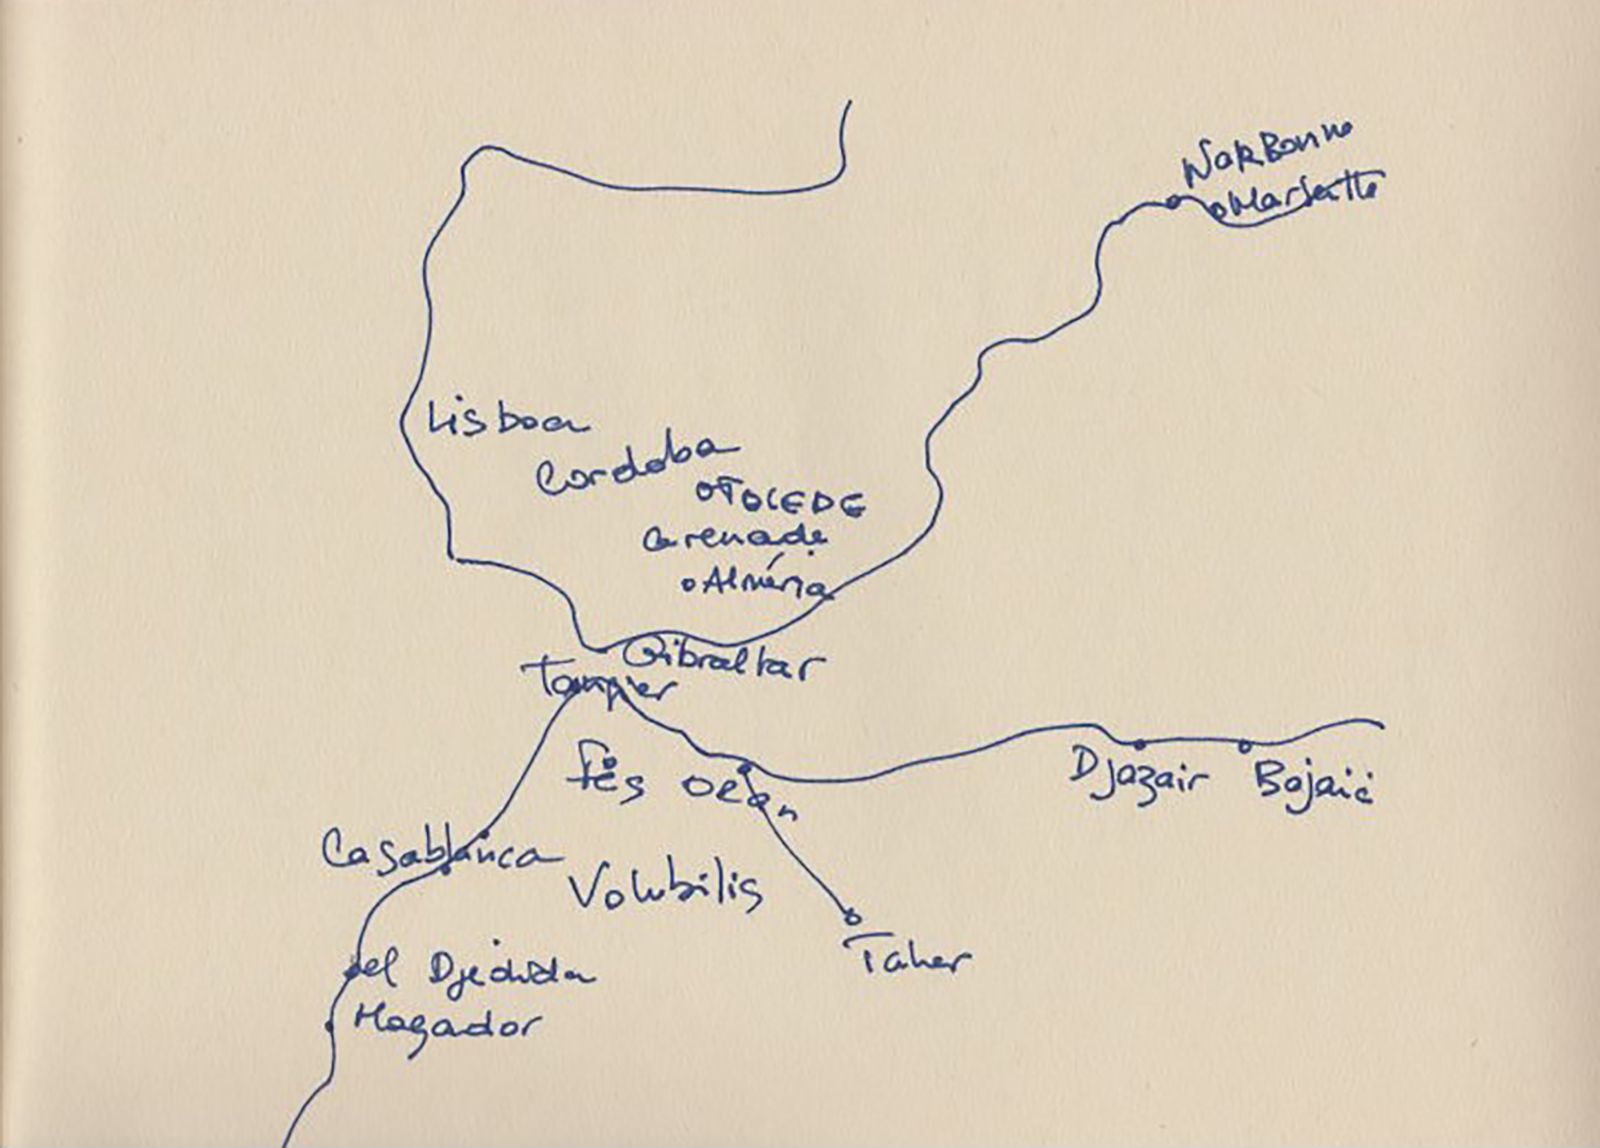 NarBonne
Marseille
Lisboa
Cordoba
TOLEDE
Grenade
Alméria
Gibraltar
Tanger
Fès
Oran
Djazair
Bajaië
Casablanca
Volubilis
Taher
el Djedida
Mogador